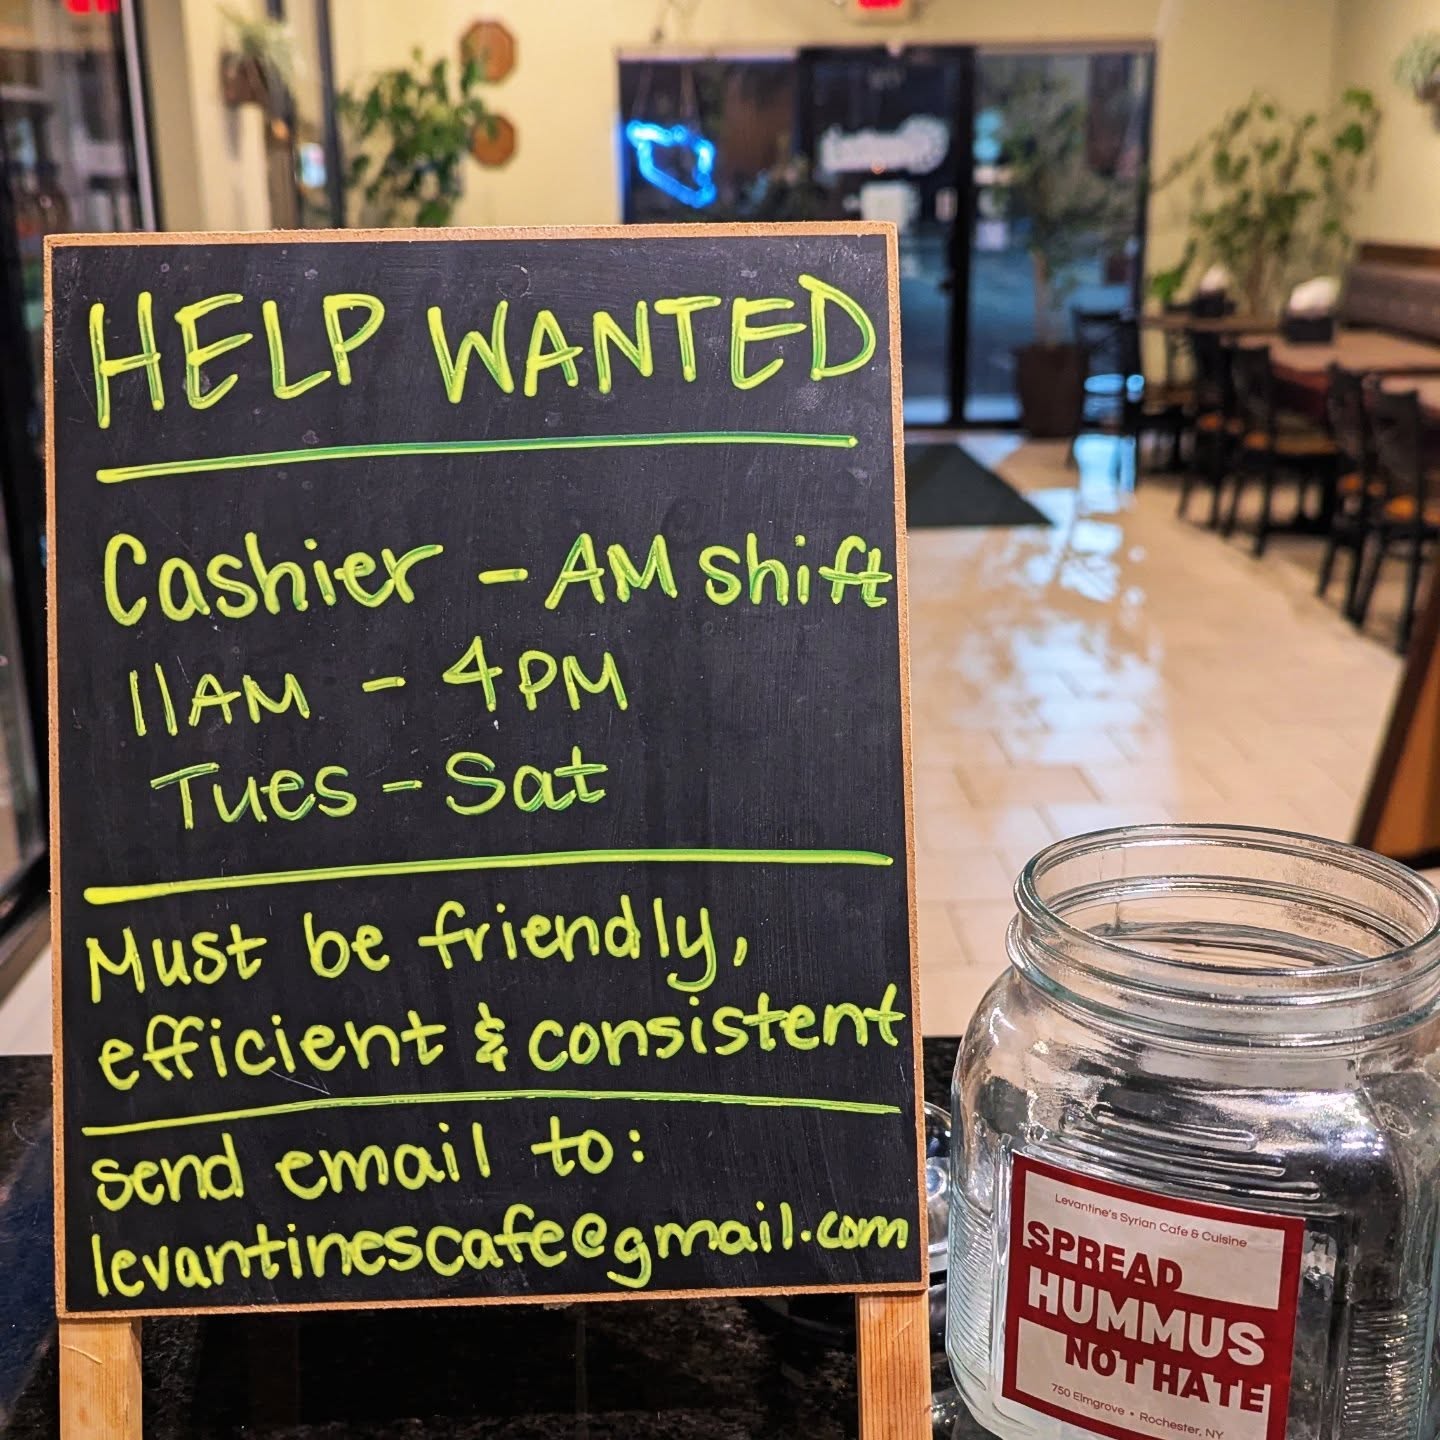 HELP WANTED
Cashier - AM shift
11AM - 4PM
Tues - Sat
Must be friendly,
efficient & consistent
send email to:
levantinescafe@gmail.com
Levantine's Syrian Cafe & Cuisine
SPREAD
HUMMUS
NOT HATE
750 Elmgrove • Rochester, NY